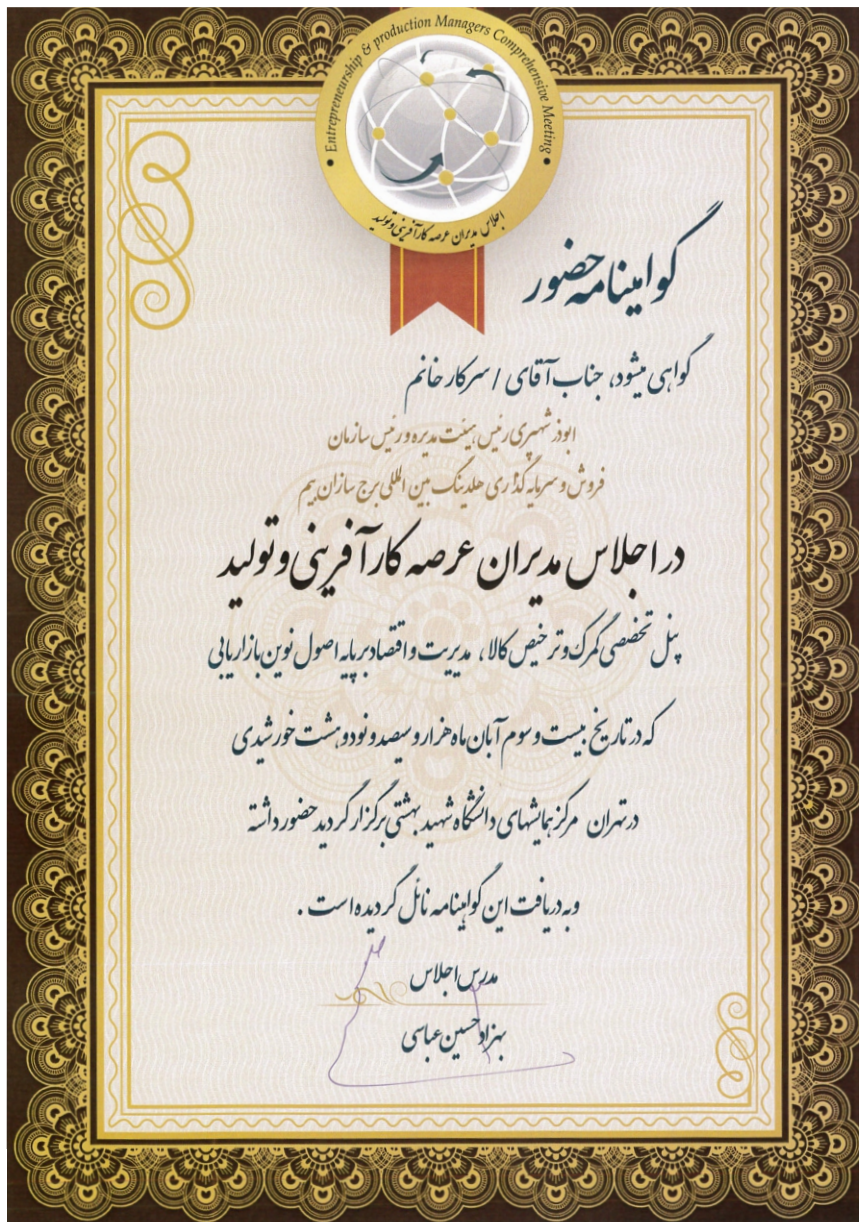 Entrepreneurship & production Managers Comprehensive Meeting
اجلاس مدیران عرصه کارآفرینی و تولید
گواهینامه حضور
گواهی میشود، جناب آقای / سرکار خانم
ابوذر شهپری رئیس هیئت مدیره و رئیس سازمان
فروش و سرمایه گذاری هلدینگ بین المللی برج سازان بیم
در اجلاس مدیران عرصه کارآفرینی و تولید
پنل تخصصی گمرک و ترخیص کالا، مدیریت و اقتصاد بر پایه اصول نوین بازاریابی
که در تاریخ بیست و سوم آبان ماه هزار و سیصد و نود و هشت خورشیدی
در تهران مرکز همایشهای دانشگاه شهید بهشتی برگزار گردید حضور داشته
و به دریافت این گواهینامه نائل گردیده است .
مدرس اجلاس
بهزاد حسین عباسی